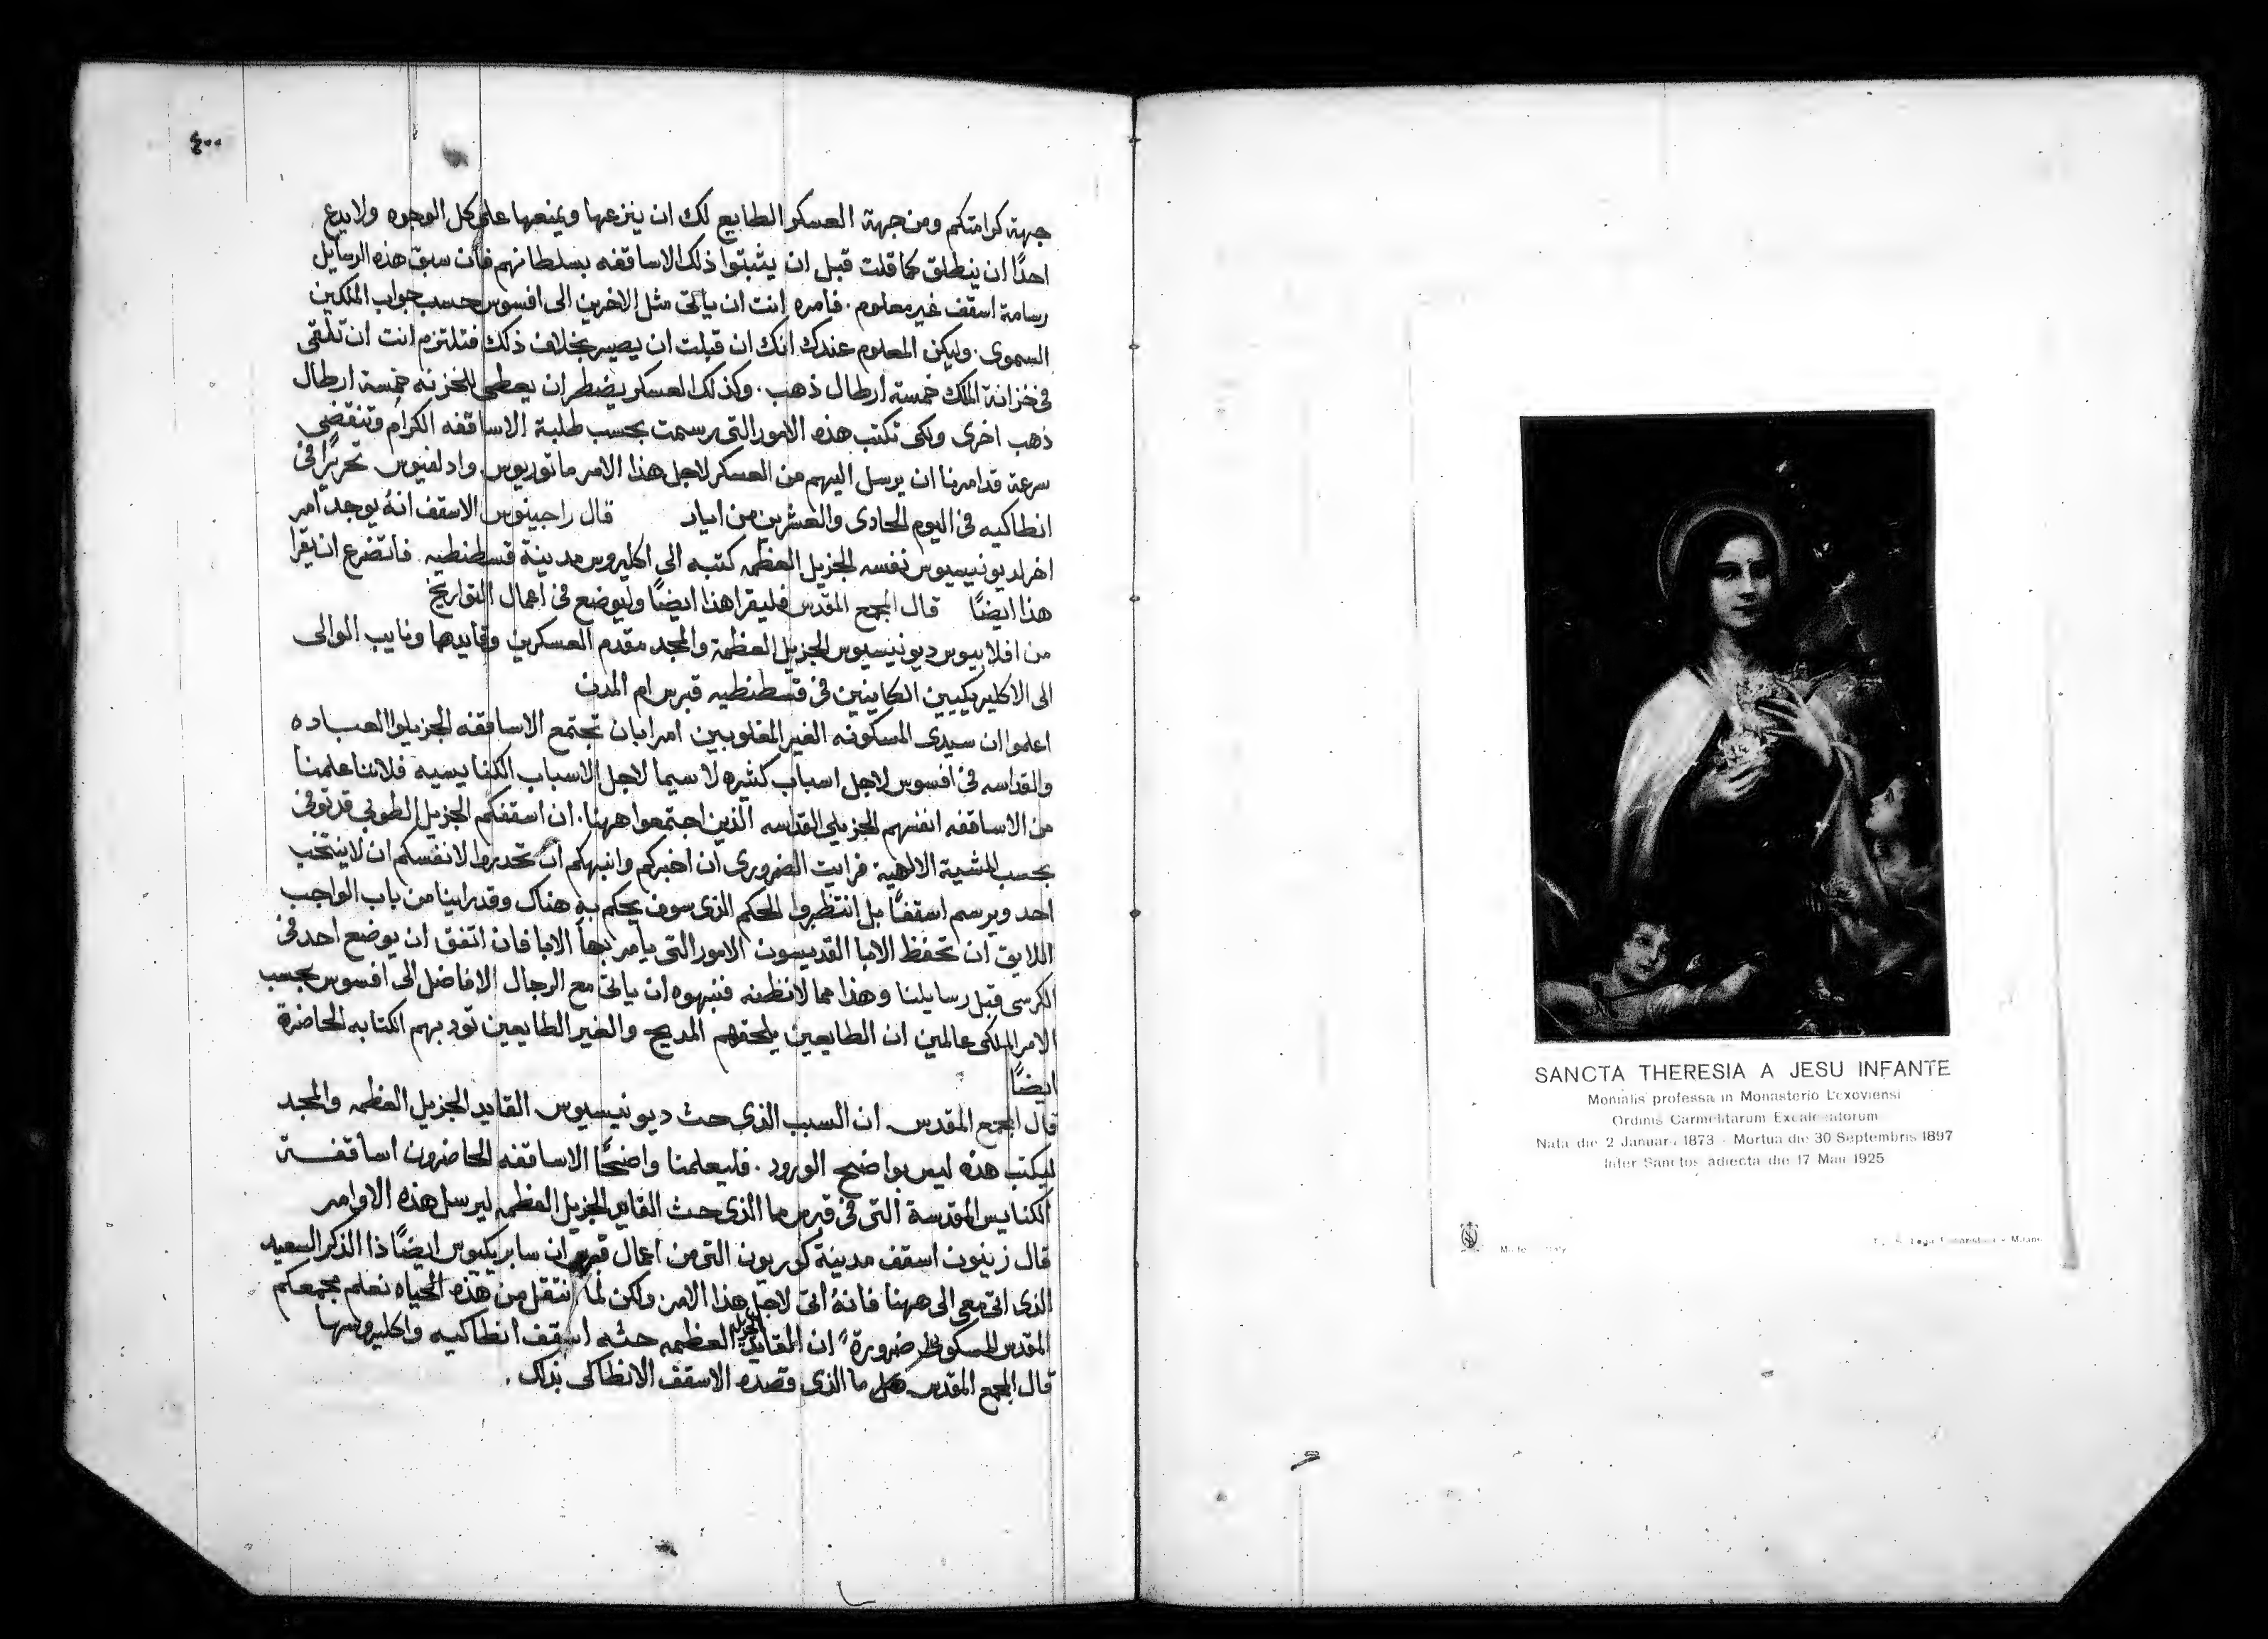 ٤٠٠
جهة كرامتكم ومن جهة العسكر الطايع لك ان ينزعها ويمنعها على كل الوجوه ولا يدع
احدًا ان ينطلق كما قلت قبل ان يثبتوا ذلك الاساقفه بسلطانهم فان سبق هذه الرسايل
رسامة اسقف غير معلوم. فامره انت ان ياتى مثل الاخرين الى افسوس حسب جواب الملكين
السموى. وليكن المعلوم عندك انك ان قبلت ان يصير بخلاف ذلك فتلتزم انت ان تلقى
فى خزانة الملك خمسة ارطال ذهب. وكذلك العسكر يضطر ان يعطى للخزنه خمسة ارطال
ذهب اخرى ولكى تكتب هذه الامور التى رسمت بحسب طلبة الاساقفه الكرام وتنقضى
سرعة قد امرنا ان يرسل اليهم من العسكر لاجل هذا الامر ماتوريوس وادلفيوس تحريرًا فى
انطاكيه فى اليوم الحادى والعشرين من ايار قال راجينوس الاسقف انهُ يوجد امر
اخر لديونيسيوس نفسه الجزيل العظمه كتبه الى اكليروس مدينة قسطنطيه. فاتضرع ان يقرا
هذا ايضًا قال المجمع المقدس فليقرا هذا ايضًا وليوضع فى اعمال التواريخ
من افلابيوس ديونيسيوس الجزيل العظمة والمجد مقدم العسكرين وقايدها ونايب الوالى
الى الاكليريكيين الكاينين فى قسطنطيه قبرس ام المدن
اعلموا ان سيدى المسكونه الغير المغلوبين امرا بان تجتمع الاساقفه الجزيلوا العباده
والقداسه فى افسوس لاجل اسباب كثيره لا سيما لاجل الاسباب الكنايسيه فلاننا علمنا
من الاساقفه انفسهم الجزيلى القداسه الذين اجتمعوا ههنا. ان اسقفكم الجزيل الطوبى قد توفى
بحسب المشية الالاهية فرايت الضرورى ان اخبركم وانبهكم ان تحدروا لانفسكم ان لا ينتخب
احد ويرسم اسقفًا بل انتظروا الحكم الذى سوف يحكم به هناك وقد راينا من باب الواجب
اللايق ان تحفظ الابا القديسون الامور التى يامر بها الابا فان اتفق ان يوضع احد فى
الكرسى قبل رسايلنا وهذا مما لا نظنه فنبهوه ان ياتى مع الرجال الافاضل الى افسوس بحسب
الامر الملكى عالمين ان الطايعين يلحقهم المديح والغير الطايعين تودبهم الكتابه الحاضرة
ايضًا
قال المجمع المقدس ان السبب الذى حث ديونيسيوس القايد الجزيل العظمه والمجد
ليكتب هذه ليس بواضح الورود. فليعلمنا واضحًا الاساقفه الحاضرون اساقفـة
الكنايس المقدسة التى فى قبرس ما الذى حث القايد الجزيل العظمه ليرسل هذه الاوامر
قال زينون اسقف مدينة كوريون التى من اعمال قبرس ان سابريكيوس ايضًا ذا الذكر السعيد
الذى اتى معى الى ههنا فانهُ اتى لاجل هذا الامر ولكن لما انتقل من هذه الحياه نعلم مجمعكم
المقدس المسكونى ضرورة ان القايد الجزيل العظمه حثه اسقف انطاكيه واكليروسها
قال المجمع المقدس ما الذى قصده الاسقف الانطاكى بذلك.
SANCTA THERESIA A JESU INFANTE
Monialis professa in Monasterio Lexoviensi
Ordinis Carmelitarum Excalceatorum
Nata die 2 Januarii 1873 - Mortua die 30 Septembris 1897
Inter Sanctos adiecta die 17 Maii 1925